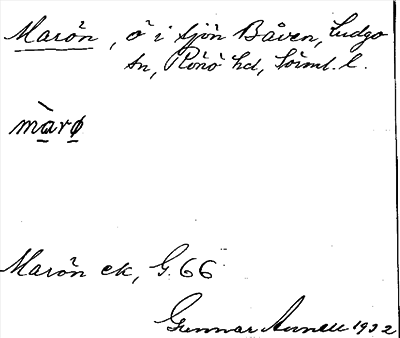 Marön, ö i sjön Båven, Ludgo
sn, Rönö hd, Söiml. l.
màrø
Marön ek, G. 66
Gunnar Annell 1932